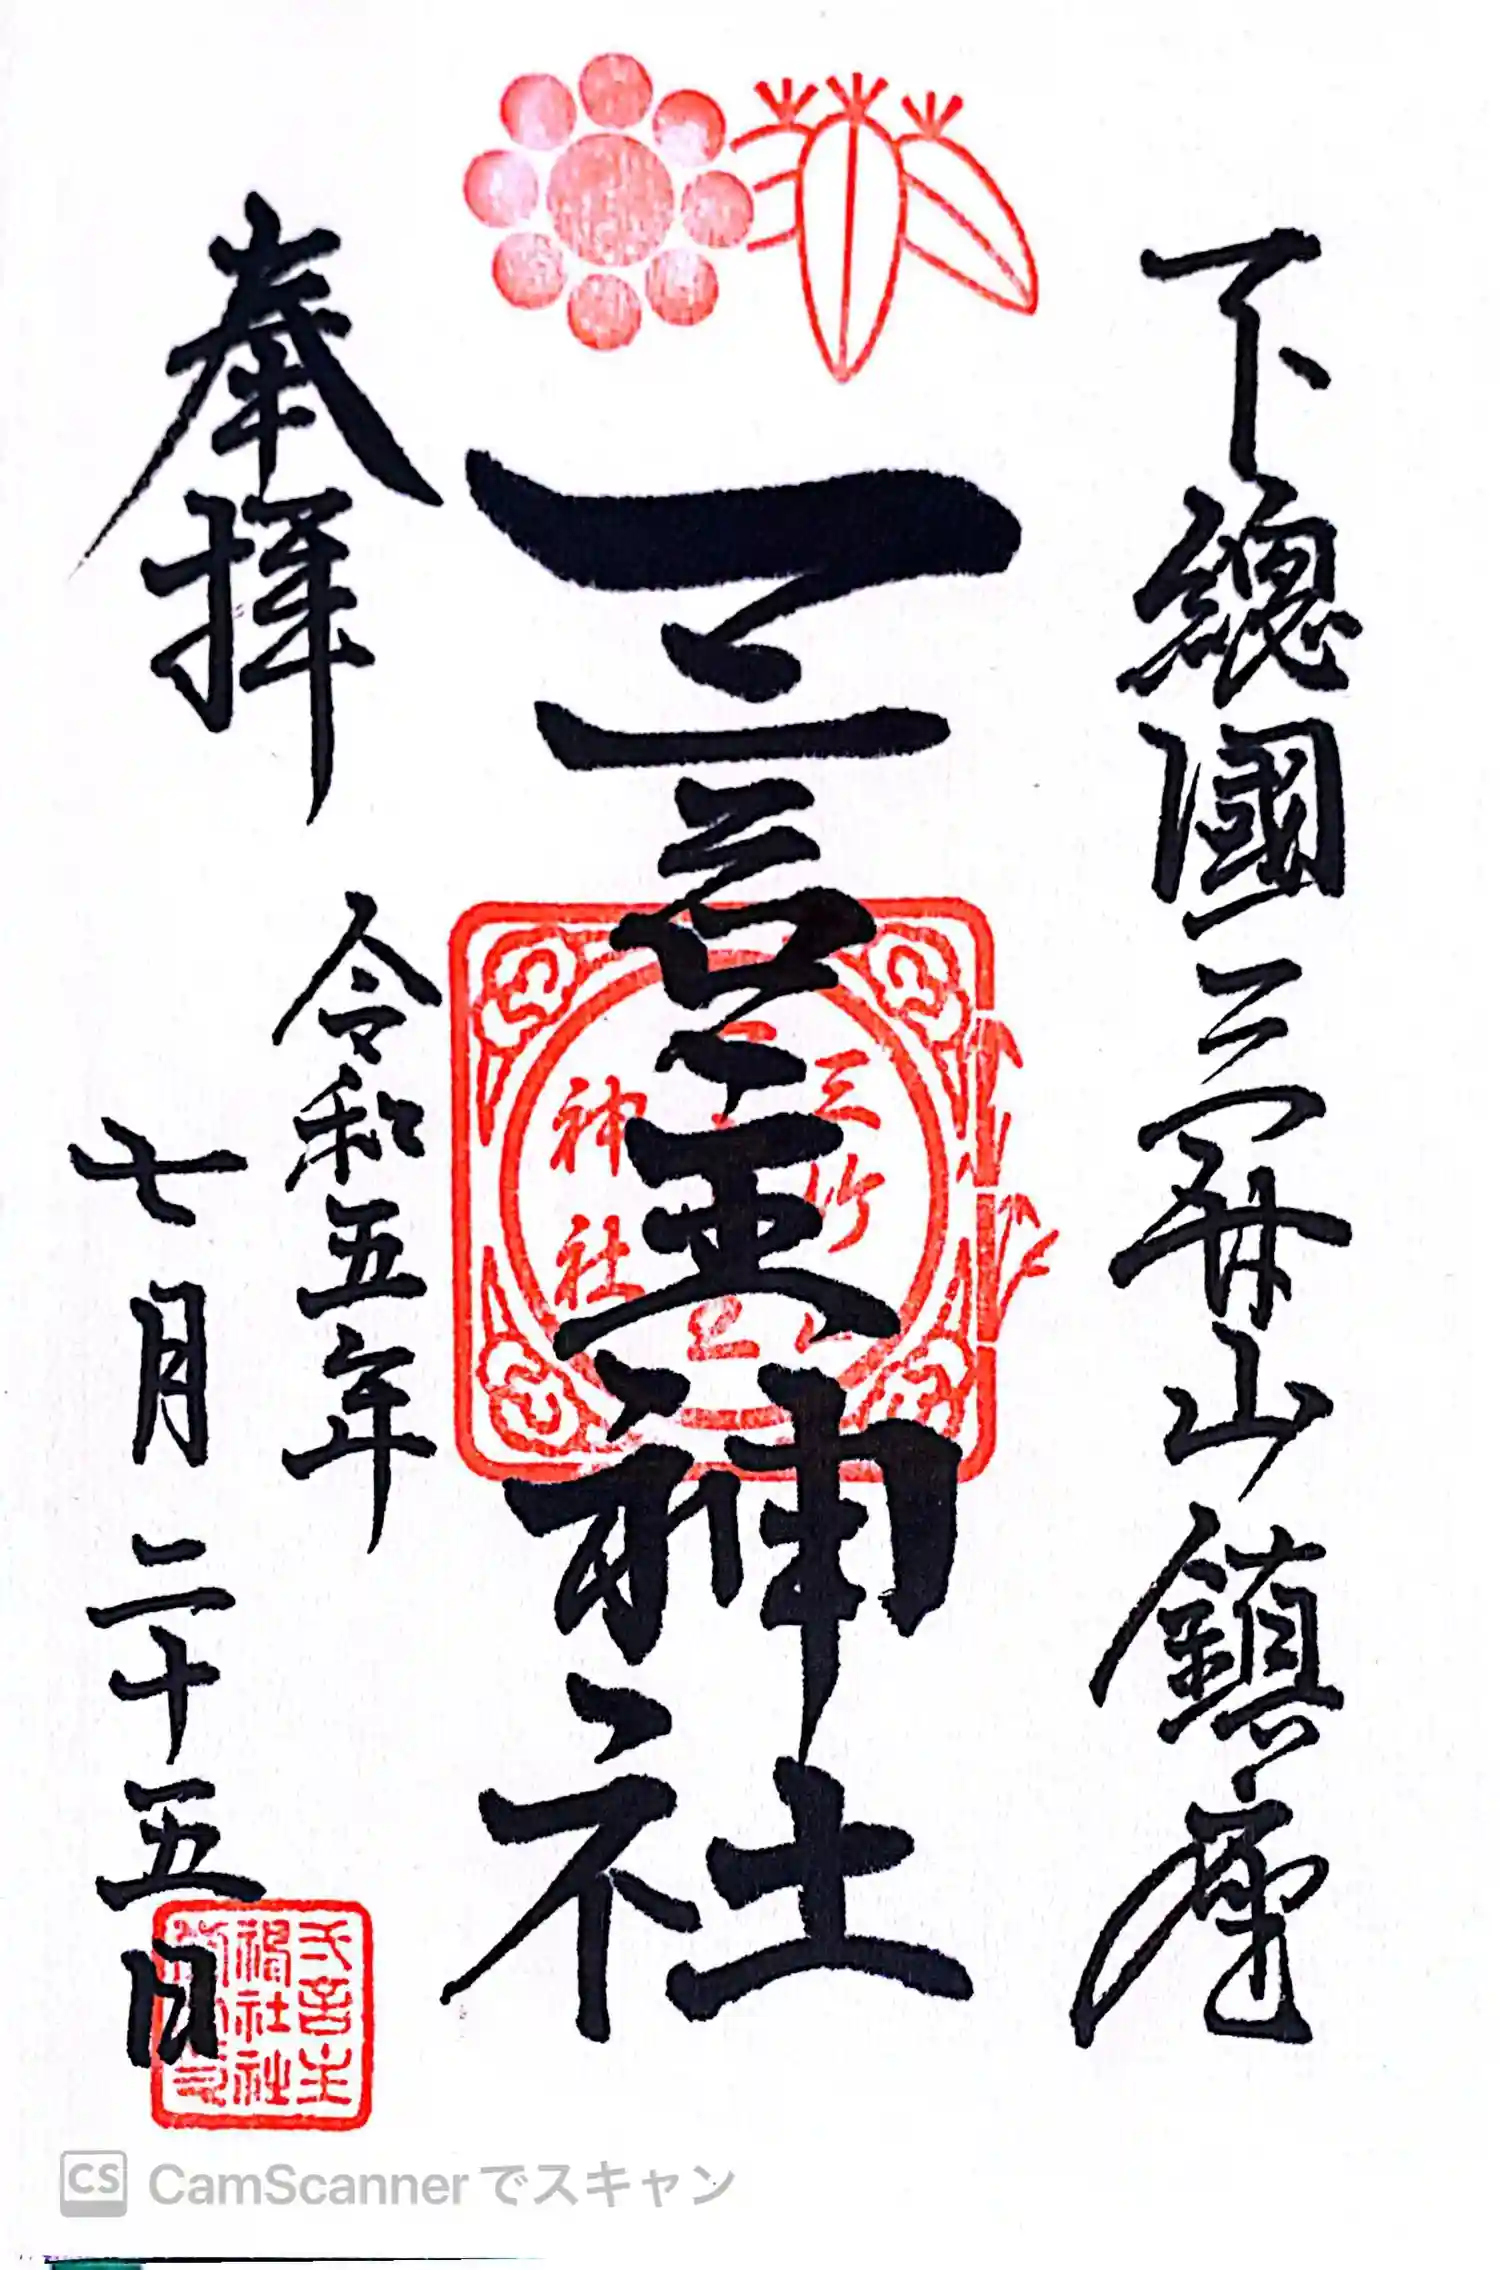 下總國三山鎮座
一言主神社
奉拝
令和五年
七月二十五日
三竹山
神社
CS CamScannerでスキャン